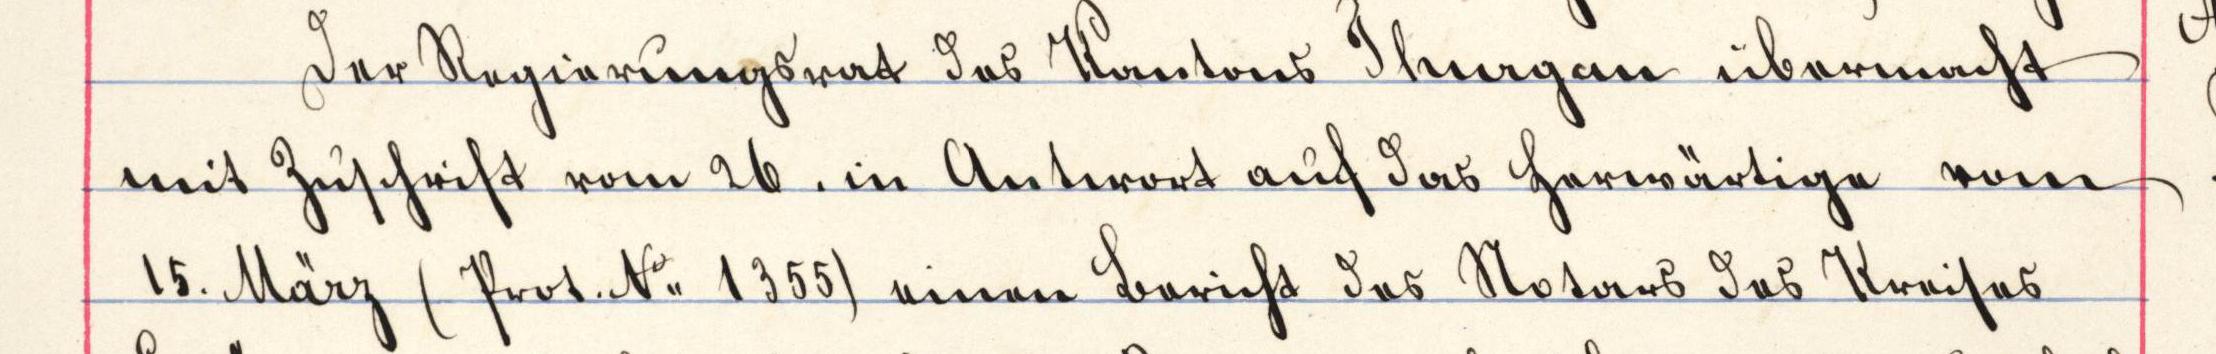 Der Regierungsrat des Kantons Thurgau übermacht
mit Zuschrift vom 26. in Antwort auf das herwärtige vom
15. März (Prot. No. 1355) einen Bericht des Notars des Kreises